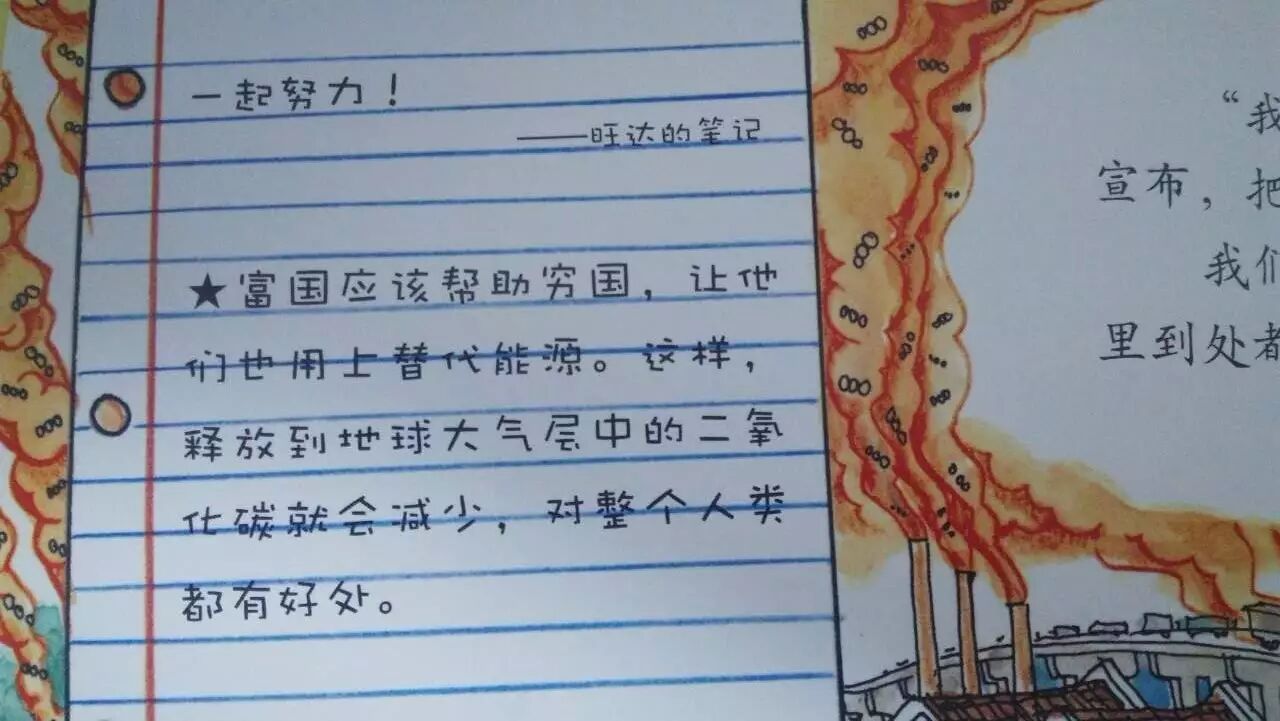 一起努力！
——旺达的笔记
★富国应该帮助穷国，让他
们也用上替代能源。这样，
释放到地球大气层中的二氧
化碳就会减少，对整个人类
都有好处。
“我
宣布，把
我们
里到处都